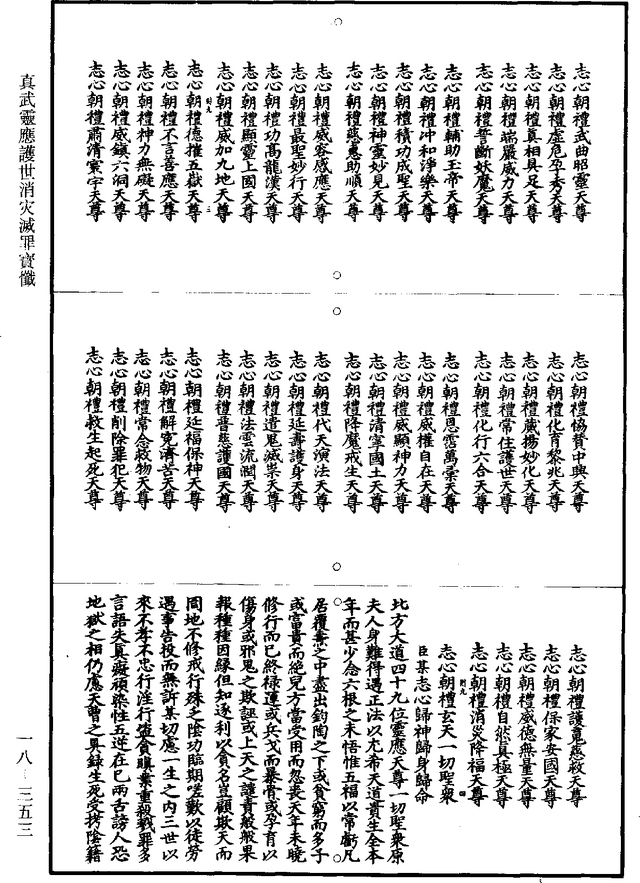 志心朝禮武曲昭靈天尊
志心朝禮虛危孕秀天尊
志心朝禮真相具足天尊
志心朝禮端嚴威力天尊
志心朝禮誓斷妖魔天尊
志心朝禮輔助玉帝天尊
志心朝禮冲和淨樂天尊
志心朝禮積功成聖天尊
志心朝禮神靈妙見天尊
志心朝禮慈惠助順天尊
志心朝禮威容感應天尊
志心朝禮功高龍漢天尊
志心朝禮最聖妙行天尊
志心朝禮顯靈上國天尊
志心朝禮威加九地天尊
志心朝禮德摧五嶽天尊
志心朝禮不言善應天尊
志心朝禮神力無礙天尊
志心朝禮威鎮六洞天尊
志心朝禮肅清寰宇天尊
志心朝禮協贊中興天尊
志心朝禮化育黎兆天尊
志心朝禮葳揚妙化天尊
志心朝禮常住護世天尊
志心朝禮化行六合天尊
志心朝禮恩霑萬彙天尊
志心朝禮威權自在天尊
志心朝禮威顯神力天尊
志心朝禮清寧國土天尊
志心朝禮降魔戒生天尊
志心朝禮代天演法天尊
志心朝禮延壽護身天尊
志心朝禮遣鬼滅祟天尊
志心朝禮法雲流潤天尊
志心朝禮普慈護國天尊
志心朝禮延福保神天尊
志心朝禮解冤濟苦天尊
志心朝禮常念救物天尊
志心朝禮削除罪犯天尊
志心朝禮救生起死天尊
志心朝禮護蠢慈救天尊
志心朝禮保家安國天尊
志心朝禮威德無量天尊
志心朝禮自然真極天尊
志心朝禮消災降福天尊
志心朝禮玄天一切聖衆
臣某志心歸神歸身歸命
北方大道四十九位靈應天尊一切聖衆原
夫人身難得遇正法以尤希天道貴生全本
年而甚少念六根之未悟惟五福以常虧凡
居覆燾之中盡出鈞陶之下或貧窮而多子
或富貴而絕兒方當受用而忽喪天年未曉
修行而已終祿運或兵戈而暴骨或孕育以
傷身或邪鬼之欺誣或上天之譴責般般果
報種種因緣但知逐利以貪名豈顧欺天而
罔地不修戒行殊之陰功臨期嗟歎以徒勞
遇事告投而無訴某切慮一生之內三世以
來不孝不忠行淫行盜貪瞋業重殺戮罪多
言語失真癡頑染性五逆在已兩舌謗人恐
地獄之相仍慮天曹之具錄生死受拷陰籍
真武靈應護世消災滅罪寶懺
一八-三五三